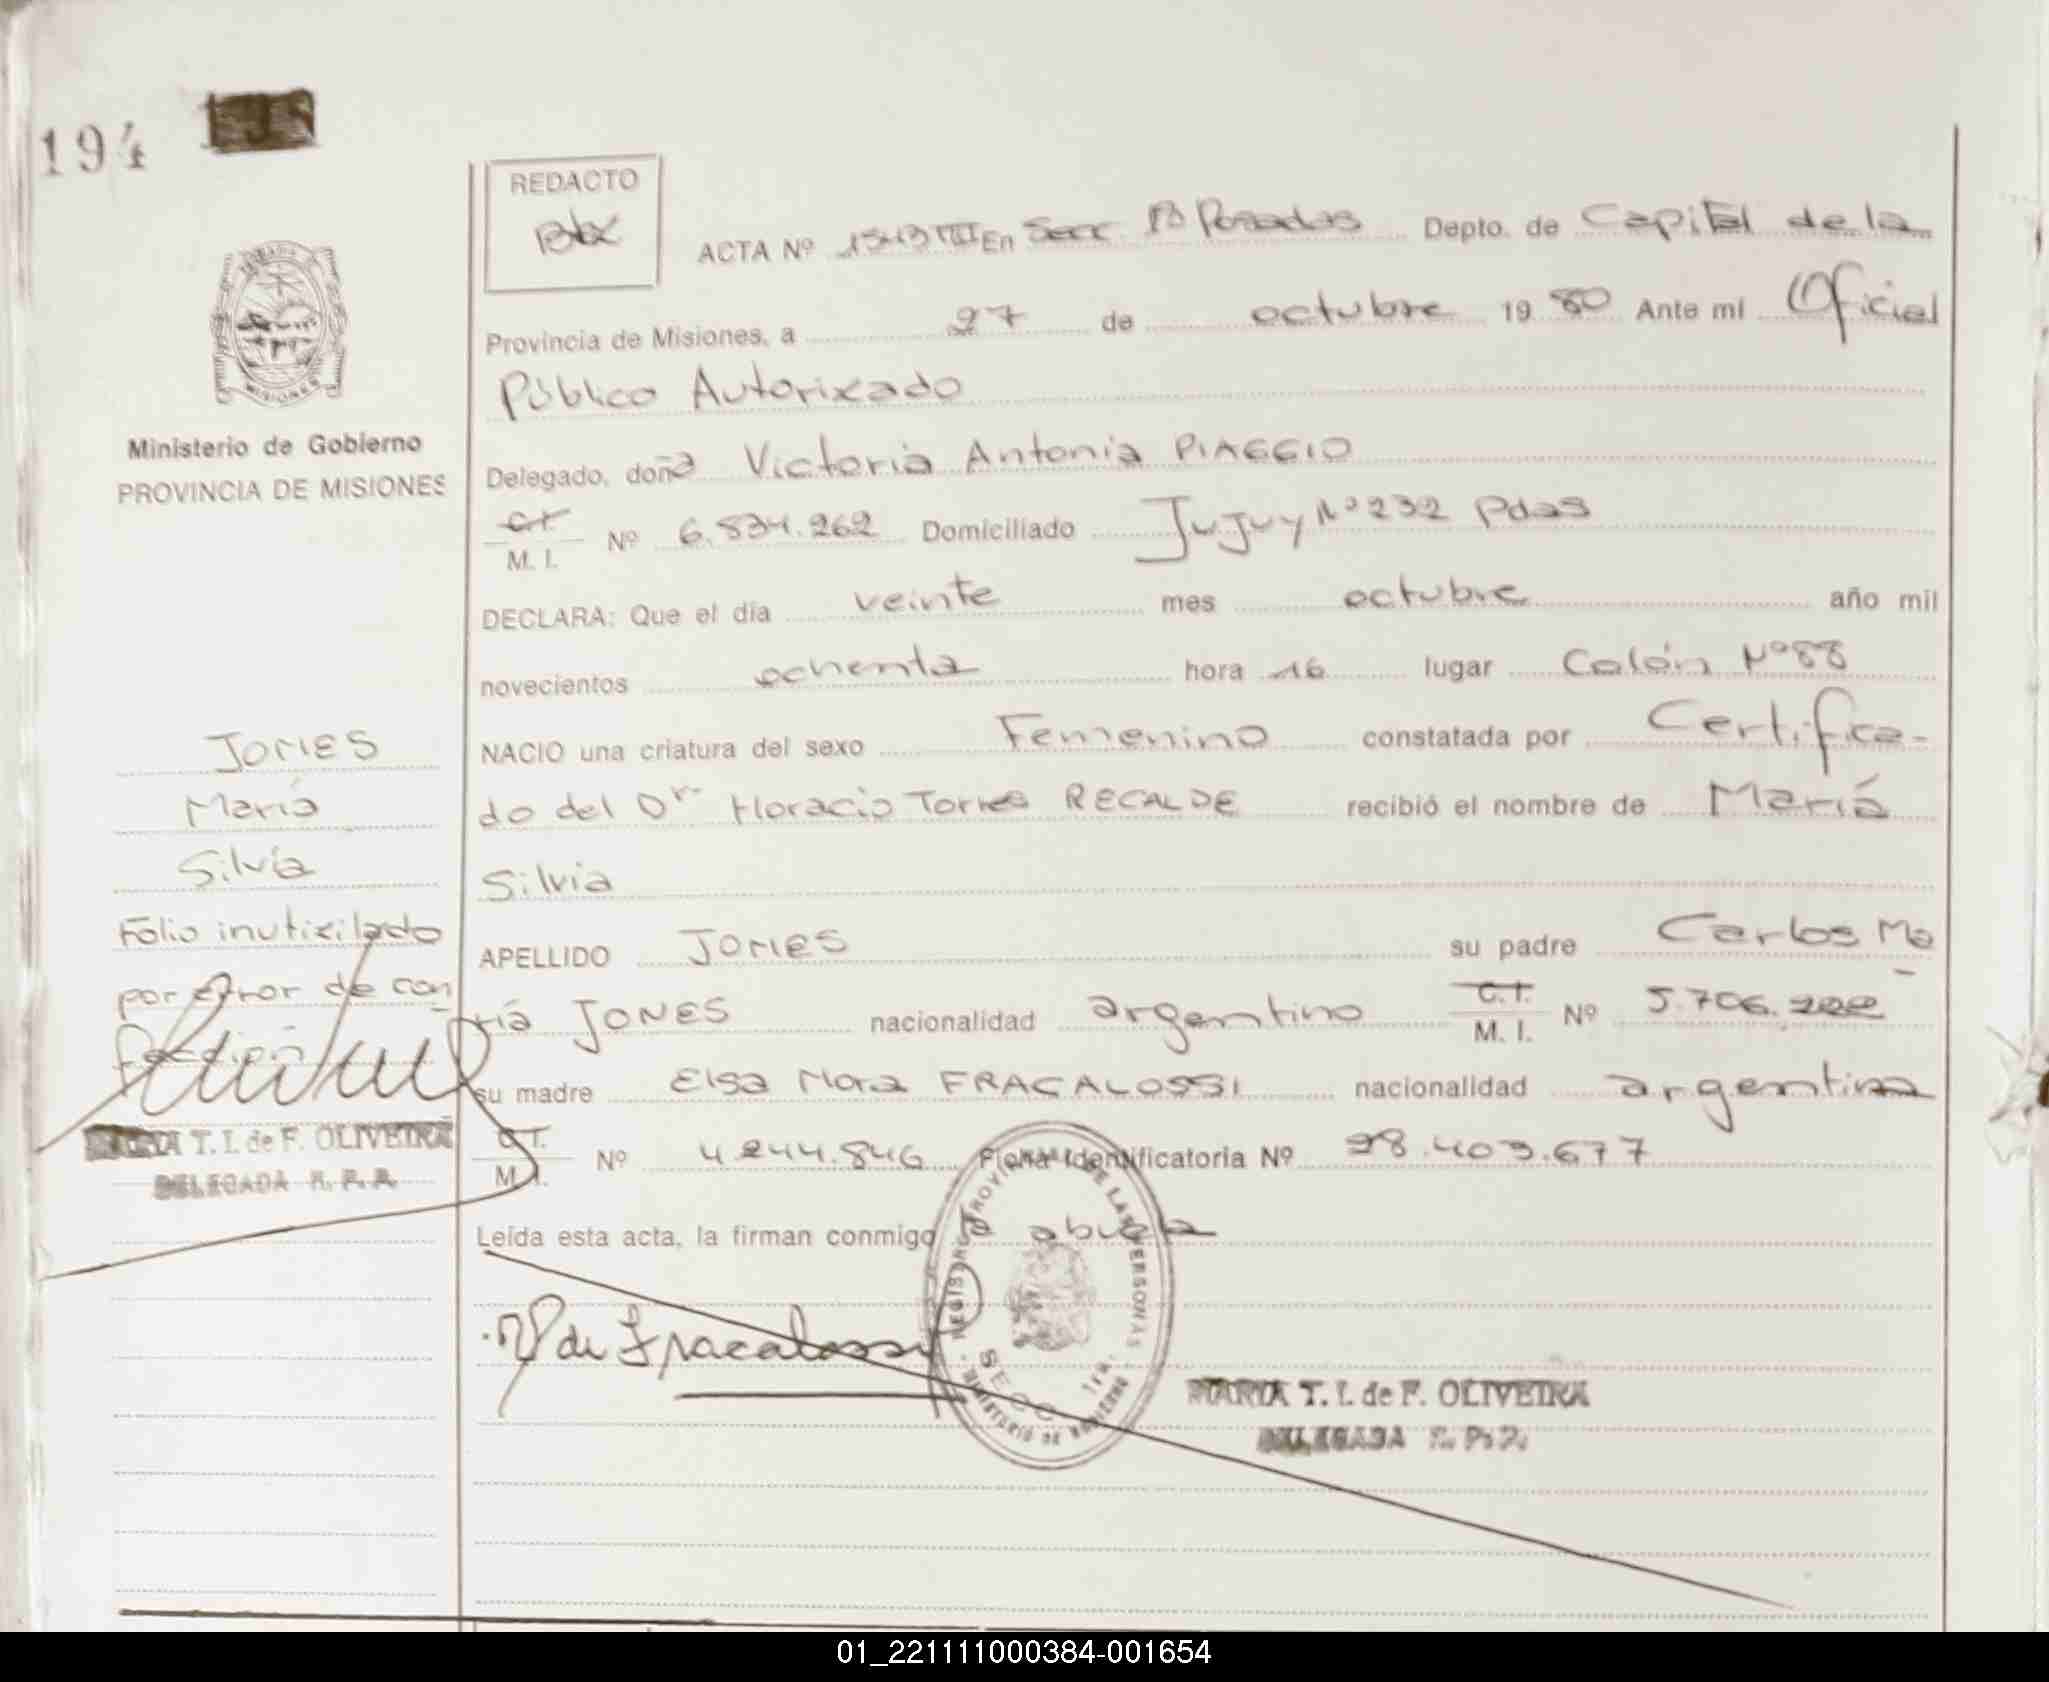 194
REDACTO
ACTA Nº 1343 III En Secc 1ª Posadas Depto. de Capital de la
Provincia de Misiones, a 27 de octubre 1980 Ante mí Oficial
Público Autorixado
Ministerio de Gobierno
PROVINCIA DE MISIONES
Delegado, doña Victoria Antonia PIAGGIO
C.I.
M. I. Nº 6.834.262 Domiciliado Jujuy Nº 232 Pdas
DECLARA: Que el día veinte mes octubre año mil
novecientos ochenta hora 16 lugar Colón Nº 88
NACIO una criatura del sexo Femenino constatada por Certifica-
do del Dr Horacio Torres RECALDE recibió el nombre de María
Silvia
APELLIDO JONES su padre Carlos Ma
ría JONES nacionalidad argentino C.I.
M. I. Nº 5.706.222
su madre Elsa Nora FRACALOSSI nacionalidad argentina
C.I.
M. I. Nº 4.244.846 Ficha Identificatoria Nº 28.403.677
Leída esta acta, la firman conmigo la abuela
de Fracalossi
JONES
María
Silvia
Folio inutixilado
por error de con
fección
MARIA T. I. de F. OLIVEIRA
DELEGADA R. P. P.
REGISTRO PROVINCIAL DE LAS PERSONAS
MINISTERIO DE GOBIERNO
SECC 1ra.
MARIA T. I. de F. OLIVEIRA
DELEGADA R. P. P.
01_221111000384-001654